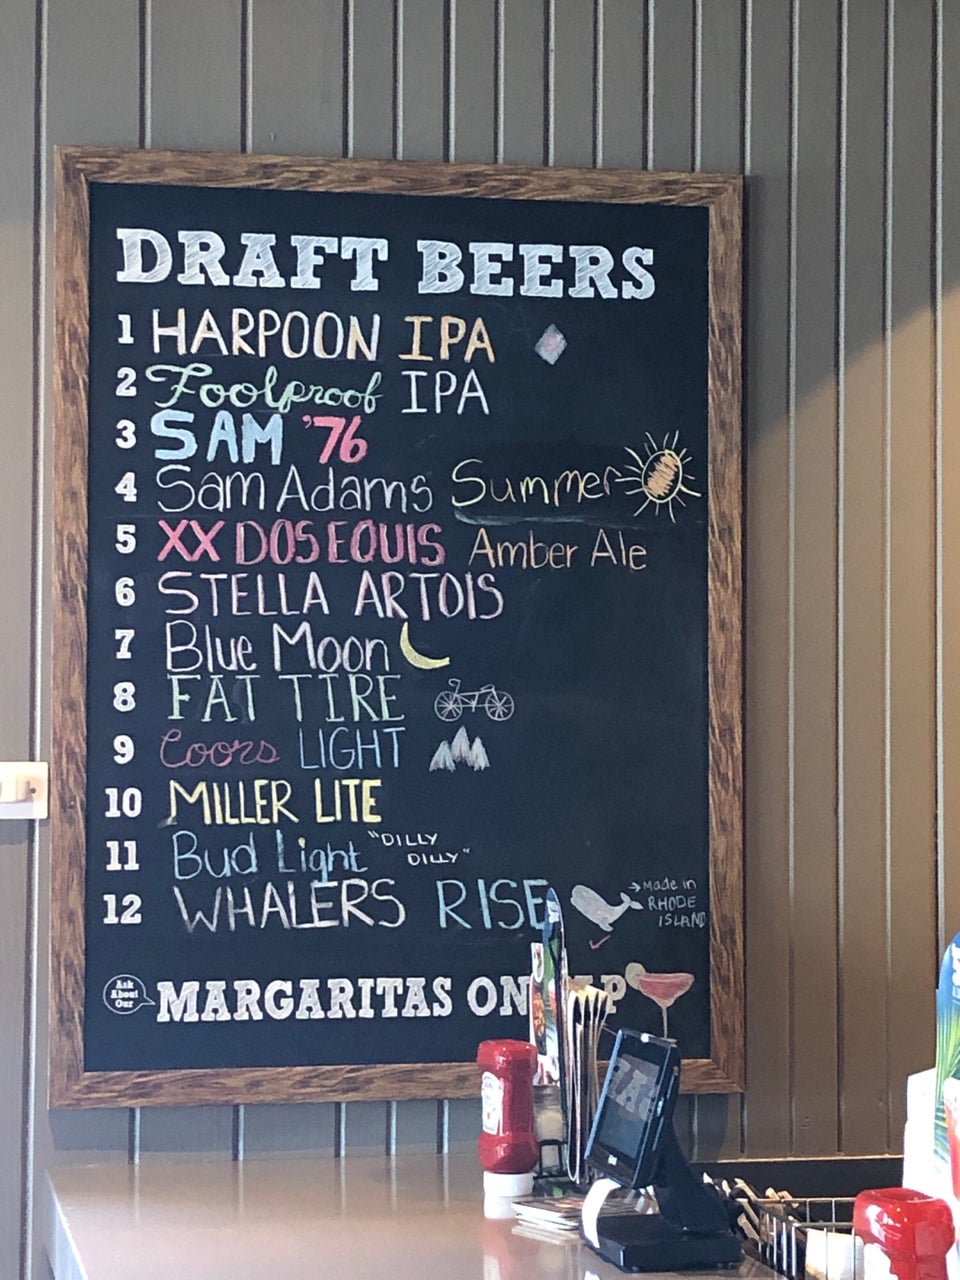 DRAFT BEERS
1 HARPOON IPA
2 Foolproof IPA
3 SAM '76
4 Sam Adams Summer
5 XX DOS EQUIS Amber Ale
6 STELLA ARTOIS
7 Blue Moon
8 FAT TIRE
9 Coors LIGHT
10 MILLER LITE
11 Bud Light "DILLY
DILLY"
12 WHALERS RISE → Made in
RHODE
ISLAND
Ask
About
Our
MARGARITAS ON